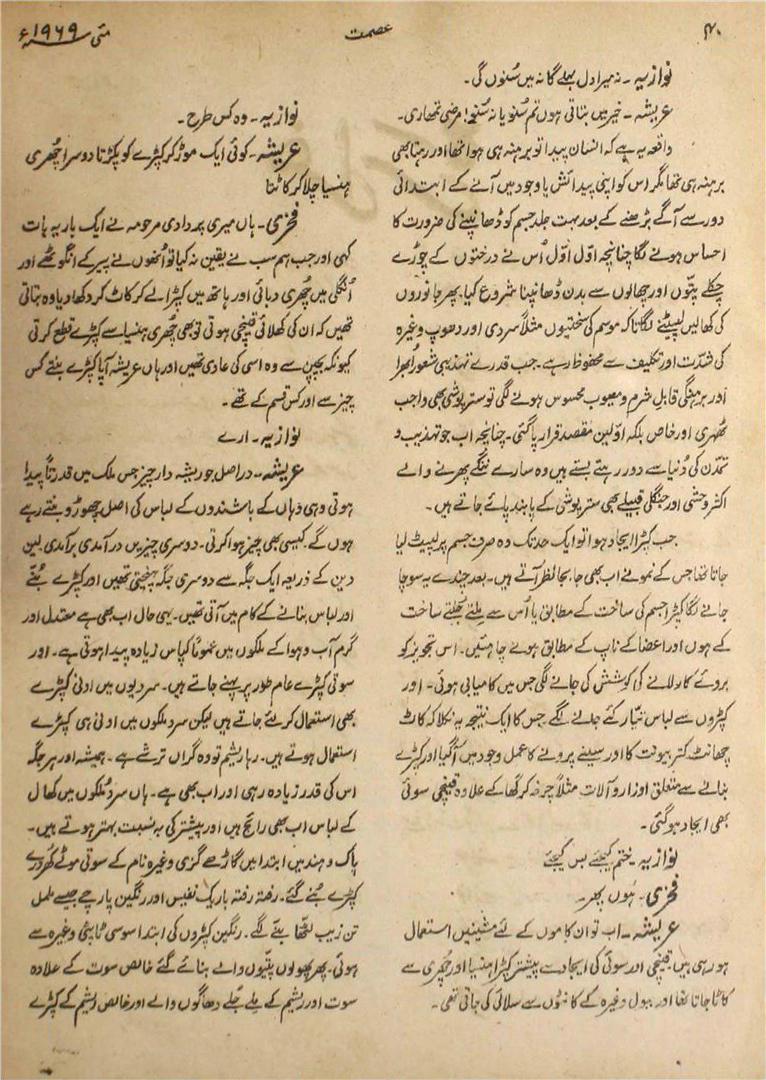 ۴۰
عصمت
مئی ۱۹۶۹ء
نوازیہ۔ نہ میرا دل بہلے گا نہ میں سُنوں گی۔
عریشہ۔ خیر میں بتاتی ہوں تم سُنو یا نہ سُنو! مرضی تمھاری۔
واقعہ یہ ہے کہ انسان پیدا تو برہنہ ہی ہوا تھا اور رہتا بھی
برہنہ ہی تھا مگر اس کو اپنی پیدائش یا وجود میں آنے کے ابتدائی
دور سے آگے بڑھنے کے بعد بہت جلد جسم کو ڈھانپنے کی ضرورت کا
احساس ہونے لگا چنانچہ اوّل اوّل اُس نے درختوں کے چوڑے
چکلے پتّوں اور چھالوں سے بدن ڈھانپنا شروع کیا۔ پھر جانوروں
کی کھالیں لپیٹنے لگا تاکہ موسم کی سختیوں مثلاً سردی اور دھوپ وغیرہ
کی شدّت اور تکلیف سے محفوظ رہے۔ جب قدرے تہذیبی شعور ابھرا
اور برہنگی قابلِ شرم و معیوب محسوس ہونے لگی تو ستر پوشی بھی واجب
ٹھہری اور خاص بلکہ اوّلین مقصد قرار پا گئی۔ چنانچہ اب جو تہذیب و
تمدّن کی دُنیا سے دور رہتے بستے ہیں وہ سارے ننگے پھرنے والے
اکثر وحشی اور جنگلی قبیلے بھی ستر پوشی کے پابند پائے جاتے ہیں۔
جب کپڑا ایجاد ہوا تو ایک حد تک وہ صرف جسم پر لپیٹ لیا
جاتا تھا جس کے نمونے اب بھی جا بجا نظر آتے ہیں۔ بعد چندے یہ سوچا
جانے لگا کپڑا جسم کی ساخت کے مطابق یا اُس سے ملنے جُلنے ساخت
کے ہوں اور اعضا کے ناپ کے مطابق ہونے چاہئیں۔ اس تجویز کو
بروئے کار لانے کی کوشش کی جانے لگی جس میں کامیابی ہوئی۔ اور
کپڑوں سے لباس تیّار کئے جانے لگے۔ جس کا ایک نتیجہ یہ نکلا کہ کاٹ
چھانٹ، کتر بیونت کا اور سینے پرونے کا عمل وجود میں آگیا اور کپڑے
بنانے سے متعلق اوزار و آلات مثلاً چرخہ کرگھا کے علاوہ قینچی سوئی
بھی ایجاد ہو گئی۔
نوازیہ۔ ختم کیجئے بس کیجئے
فخری۔ ہُوں پھر۔
عریشہ۔ اب تو ان کاموں کے لئے مشینیں استعمال
ہو رہی ہیں قینچی اور سوئی کی ایجاد سے پیشتر کپڑا ہنسیا اور چھُری سے
کاٹا جاتا تھا اور ببول وغیرہ کے کانٹوں سے سلائی کی جاتی تھی۔
نوازیہ۔ وہ کس طرح۔
عریشہ۔ کوئی ایک موڑ کر کپڑے کو پکڑتا دوسرا چھُری
ہنسیا چلا کر کاٹتا
فخری۔ ہاں میری پردادی مرحومہ نے ایک بار یہ بات
کہی اور جب ہم سب نے یقین نہ کیا تو اُنھوں نے پیر کے انگوٹھے اور
اُنگلی میں چھُری دبائی اور ہاتھ میں کپڑا لے کر کاٹ کر دکھا دیا وہ بتاتی
تھیں کہ ان کی کھلائی قینچی ہوتی تو بھی چھُری ہنسیا سے کپڑے قطع کرتی
کیونکہ بچپن سے وہ اسی کی عادی تھیں اور ہاں عریشہ آپا کپڑے بنتے کس
چیز سے اور کس قسم کے تھے۔
نوازیہ۔ ارے
عریشہ۔ دراصل جو ریشہ دار چیز جس ملک میں قدرتاً پیدا
ہوتی وہی وہاں کے باشندوں کے لباس کی اصل چھوڑو بنتے رہے
ہوں گے۔ کیسی بھی چیز ہوا کرتی۔ دوسری چیزیں در آمدی برآمدی لین
دین کے ذریعہ ایک جگہ سے دوسری جگہ پہنچتی تھیں اور کپڑے بُننے
اور لباس بنانے کے کام میں آتی تھیں۔ یہی حال اب بھی ہے معتدل اور
گرم آب و ہوا کے ملکوں میں عموماً کپاس زیادہ پیدا ہوتی ہے۔ اور
سوتی کپڑے عام طور پر پہنے جاتے ہیں۔ سردیوں میں اونی کپڑے
بھی استعمال کر لئے جاتے ہیں لیکن سرد ملکوں میں اونی ہی کپڑے
استعمال ہوتے ہیں۔ رہا ریشم تو وہ گراں تر شے ہے۔ ہمیشہ اور ہر جگہ
اس کی قدر زیادہ رہی اور اب بھی ہے۔ ہاں سرد مُلکوں میں کھال
کے لباس اب بھی رائج ہیں اور پیشتر کی بہ نسبت بہتر ہوتے ہیں۔
پاک و ہند میں ابتدا میں گاڑھے گزی وغیرہ نام کے سوتی موٹے کھُردرے
کپڑے بُنے گئے۔ رفتہ رفتہ باریک نفیس اور رنگین پارچے جیسے ململ
تن زیب لٹھا بننے لگے۔ رنگین کپڑوں کی ابتدا سوسی ٹاپٹی وغیرہ سے
ہوئی۔ پھر پھولوں پتّیوں والے بنائے گئے خالص سوت کے علاوہ
سوت اور ریشم کے ملے جُلے دھاگوں والے اور خالص ریشم کے کپڑے